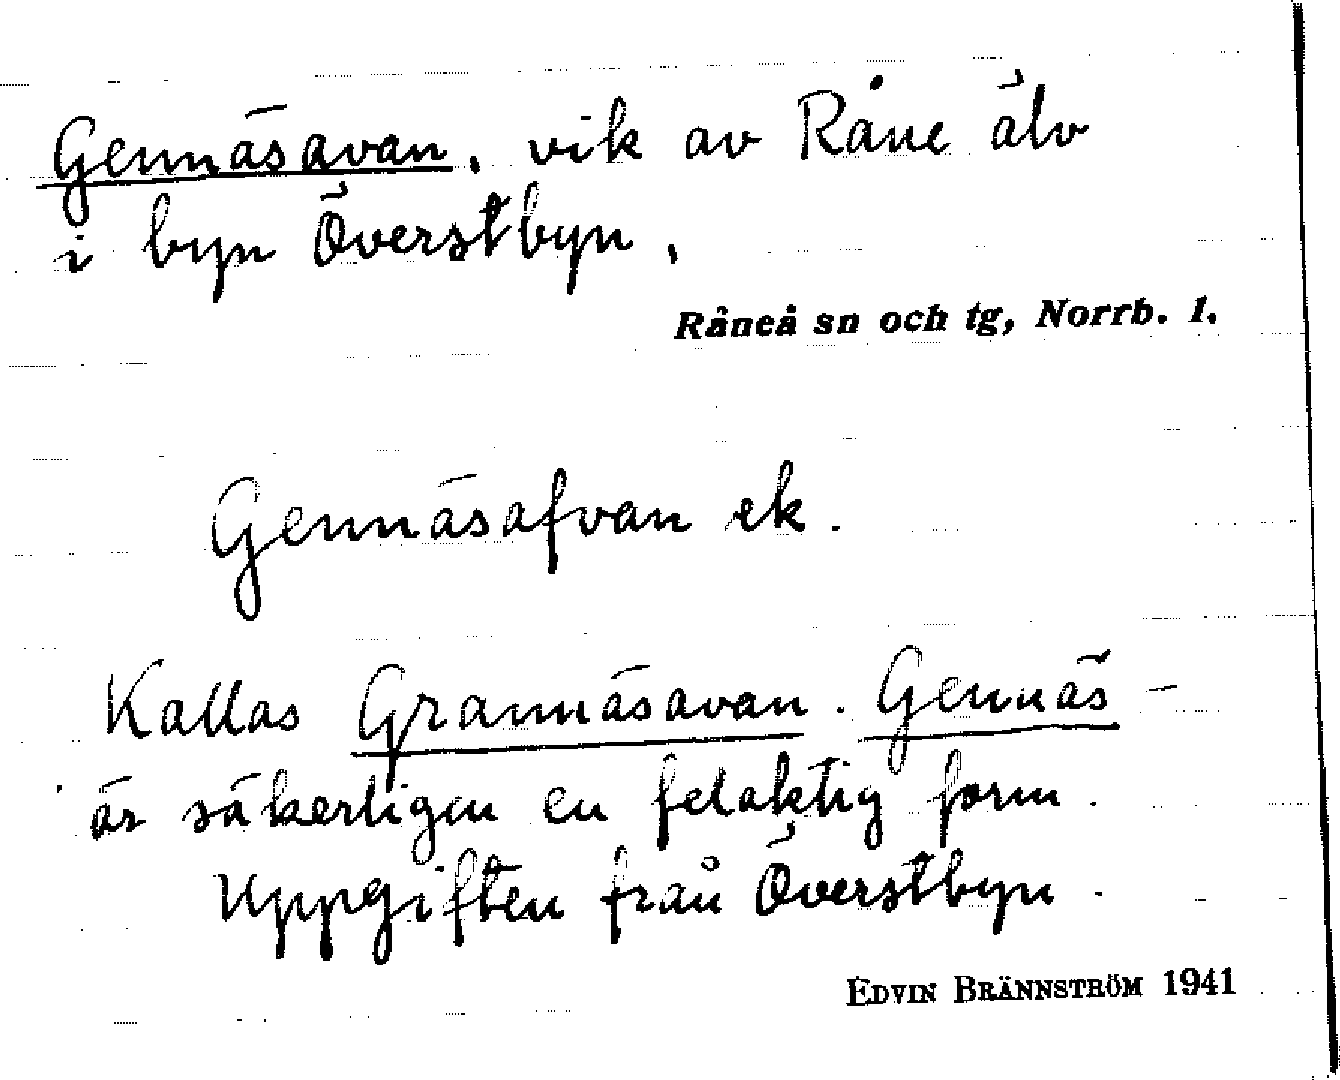 Gennäsavan, vik av Råne älv
i byn Överstbyn.
Råneå sn och tg, Norrb. l.
Gennäsafvan ek.
Kallas Grannäsavan. Gennäs-
är säkerligen en felaktig form.
Uppgiften från Överstbyn.
EDVIN BRÄNNSTRÖM 1941